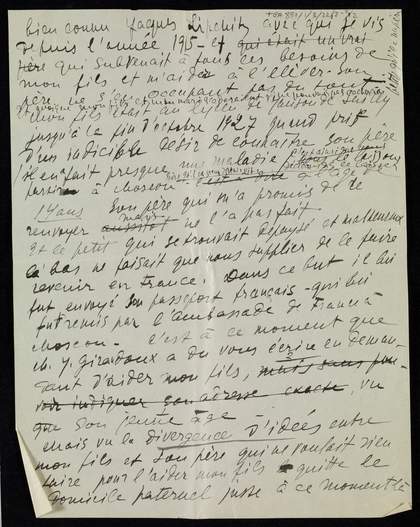 bien connu Jacques Lipchitz avec qui je vis
depuis l'année 1915 - et qui était un vrai
père qui subvenait à tous les besoins de
mon fils et m'aidait à l'élever - son
père ne s'en occupant pas du
Mon fils était au lycée
jusqu'à la fin d'octobre 1927 quand prit
d'un indicible désir de connaître son père
il en fait presque une maladie nous le
à Moscou à l'âge de
14 ans Son père qui m'a promis de le
renvoyer aussitôt mais ne l'a pas fait
Et le petit qui se trouvait dépaysé et malheureux
là bas ne faisait que nous supplier de le faire
revenir en France. Dans ce but il lui
fut envoyé son passeport français - qui lui
fut remis par l'Ambassade de France à
Moscou - c'est à ce moment que
M. J. Giraudoux a du vous écrire en deman-
dant d'aider mon fils, mais sans pou-
voir indiquer son adresse exacte, vu
que son jeune âge
Mais vu la divergence d'idées entre
mon fils et son père qui ne voulait rien
faire pour l'aider mon fils quitte le
domicile paternel juste à ce moment là